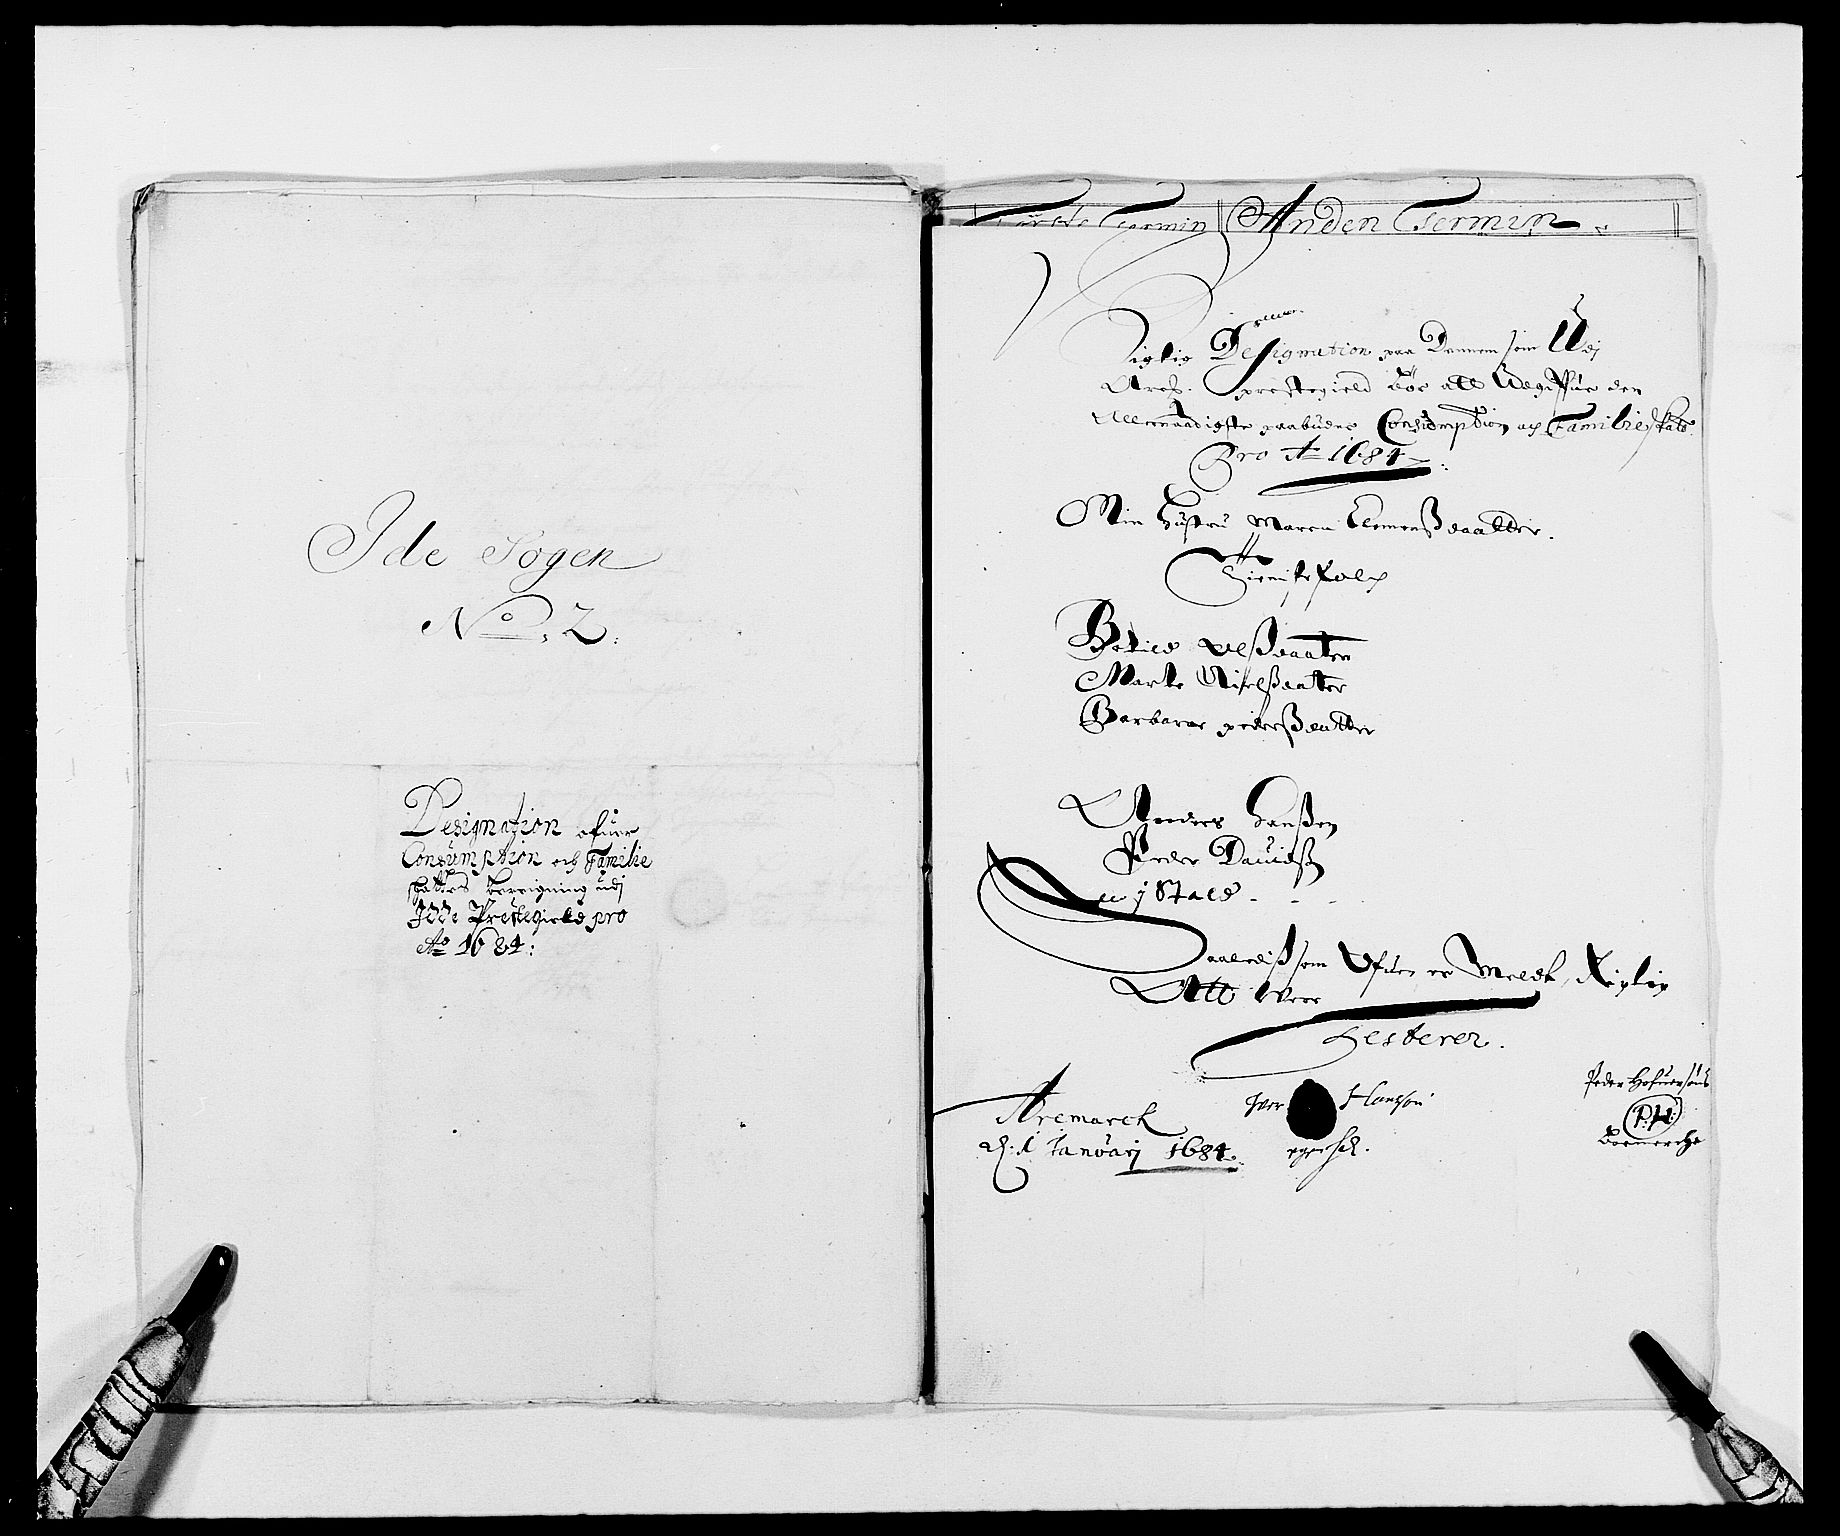 Ide Sogen
No. 2.
Designation ofuer
Consumption och Familie
schattes bereigning udj
Idde Prestegield pro
Ao 1684:
Første Termin Anden Termin
Rigtig Designation paa Dennem som Udj
Arem. prestegield bør att Udgiffue den
Allernaadigste paabudne Consumption och Familie skatt
Pro Ao 1684
Min hustru Maren Clemenßdaatter.
Tienistefolch
Olßdaater
Marte Nielßdaater
Barbara pederßdaatter
Anders Hanßen
Peder Dauidß
Saalediß som Ofuen er Meldt, Rigtig
Att Were
Testerer.
Aremarck
d. 1 Janðarj 1684.
Iver Hansøn
egen hd.
Peder Hofuersøns
P:H:
boemercke